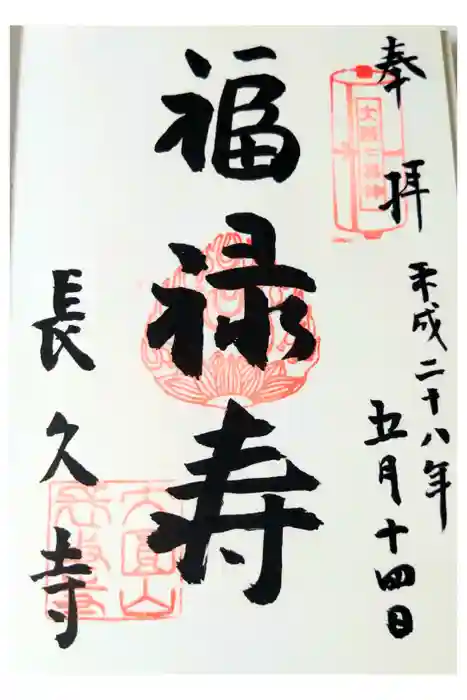 奉拝
平成二十八年
五月十四日
福禄寿
長久寺